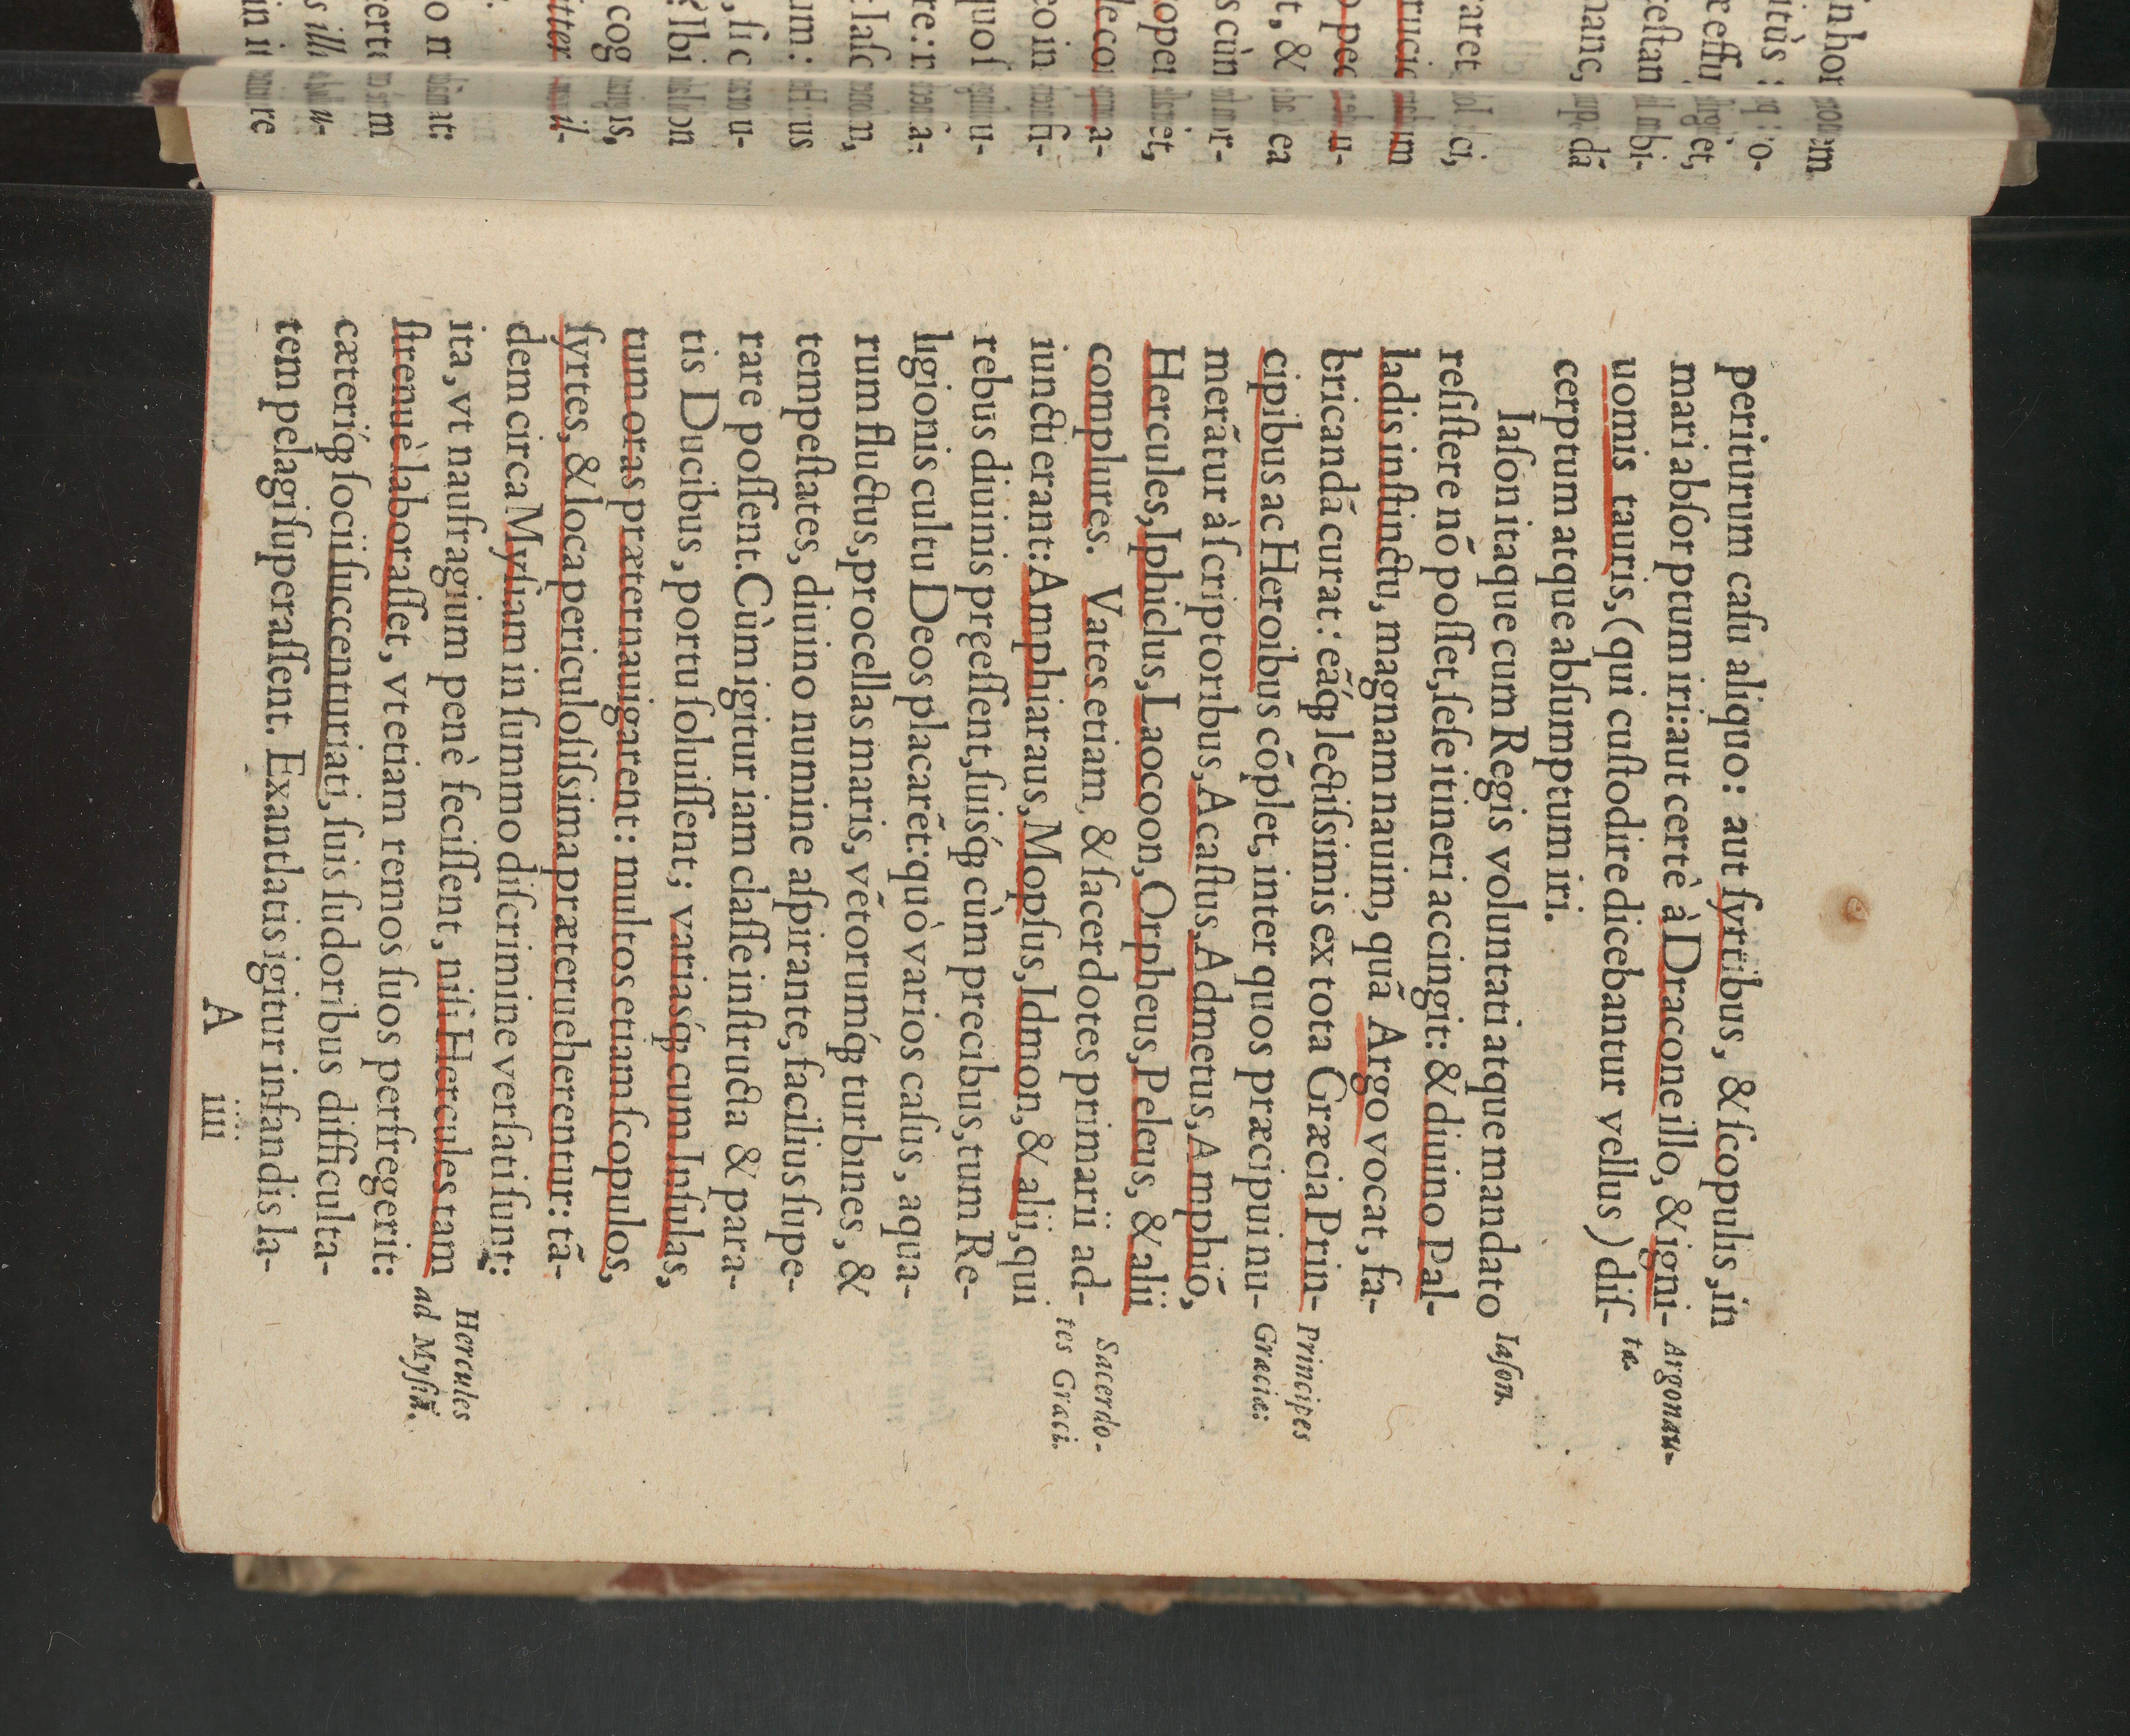 periturum caſu aliquo: aut ſyrtibus, & ſcopulis, in
mari abſorptum iri: aut certè à Dracone illo, & igni-
uomis tauris, (qui cuſtodire dicebantur vellus) diſ-
cerptum atque abſumptum iri.
Iaſon itaque cum Regis voluntati atque mandato
reſiſtere nō poſſet, ſeſe itineri accingit: & diuino Pal-
ladis inſtinctu, magnam nauim, quā Argo vocat, fa-
bricandā curat: eāq́ꝫ lectiſsimis ex tota Græcia Prin-
cipibus ac Heroibus cōplet, inter quos præcipui nu-
merātur à ſcriptoribus, Acaſtus, Admetus, Amphiō,
Hercules, Iphiclus, Laocoon, Orpheus, Peleus, & alii
complures. Vates etiam, & ſacerdotes primarii ad-
iuncti erant: Amphiaraus, Mopſus, Idmon, & alii, qui
rebus diuinis pręeſſent, ſuisq́ꝫ cùm precibus, tum Re-
ligionis cultu Deos placarēt: quò varios caſus, aqua-
rum fluctus, procellas maris, vētorumq́ꝫ turbines, &
tempeſtates, diuino numine aſpirante, facilius ſupe-
rare poſſent. Cùm igitur iam claſſe inſtructa & para-
tis Ducibus, portu ſoluiſſent; variasq́ꝫ cum Inſulas,
tum oras præternauigarent: multos etiam ſcopulos,
ſyrtes, & loca periculoſiſsima præterueherentur: tā-
dem circa Myſiam in ſummo diſcrimine verſati ſunt:
ita, vt naufragium penè feciſſent, niſi Hercules tam
ſtrenuè laboraſſet, vt etiam remos ſuos perfregerit:
cæteriq́ꝫ ſocii ſuccenturiati, ſuis ſudoribus difficulta-
tem pelagi ſuperaſſent. Exantlatis igitur infandis la-
A iiii
Argonau-
tæ.
Iaſon.
Principes
Græciæ:
Sacerdo-
tes Græci.
Hercules
ad Myſiā.